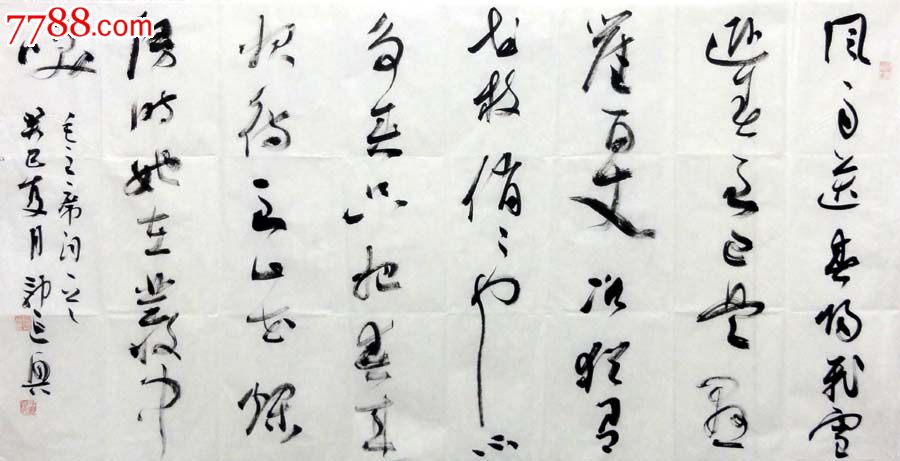 7788.com
风雨送春归飞雪
迎春到已是悬
崖百丈冰犹有
花枝俏〻也不
争春只把春来
报待到山花烂
漫时她在丛中
笑
毛主席词一
癸巳夏月